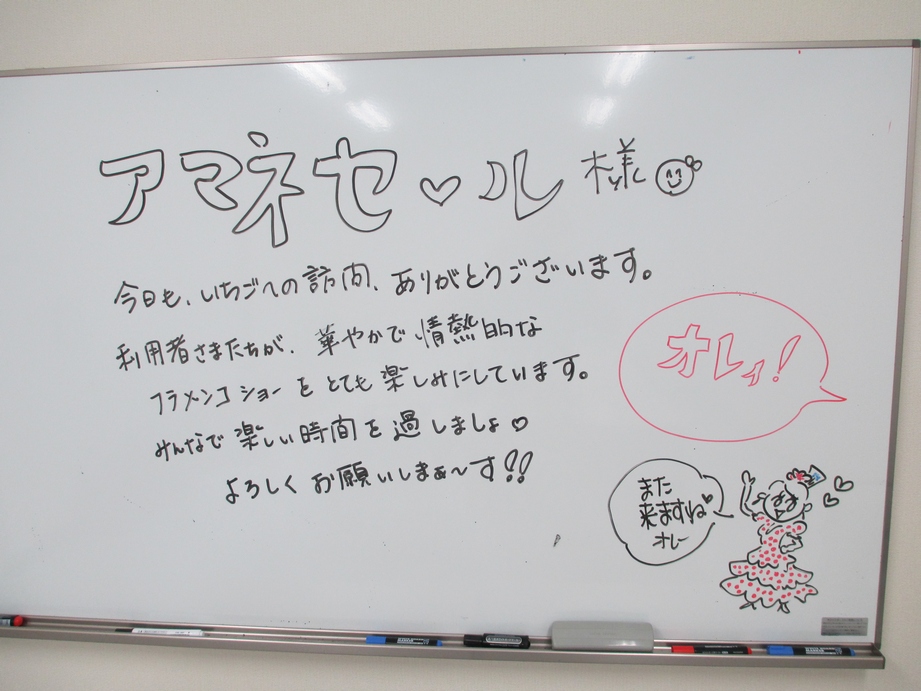 アマネセ♡ル様
今日も、いちごへの訪問、ありがとうございます。
利用者さまたちが、華やかで情熱的な
フラメンコショーをとても楽しみにしています。
みんなで楽しい時間を過しましょ♡
よろしくお願いしまぁ〜す!!
オレィ!
また
来ますね♥
オレー